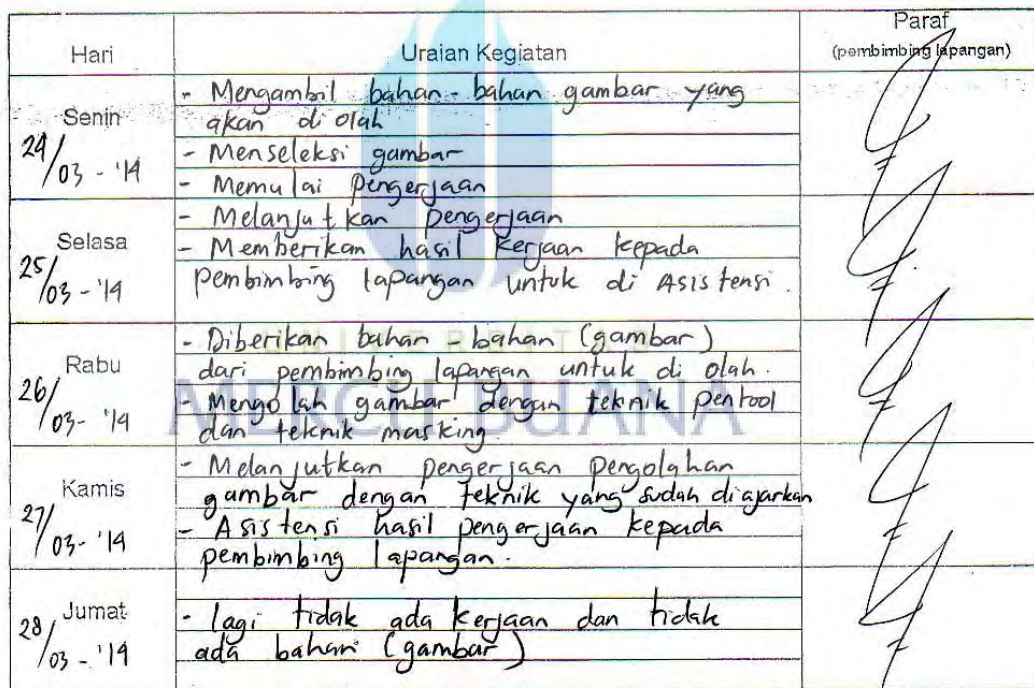 Hari Uraian Kegiatan Paraf
(pembimbing lapangan)
Senin
24/03 - '14
- Mengambil bahan - bahan gambar yang
akan di olah
- Menseleksi gambar
- Memulai Pengerjaan
Selasa
25/03 - '14
- Melanjutkan pengerjaan
- Memberikan hasil kerjaan kepada
pembimbing lapangan untuk di Asistensi.
Rabu
26/03- '14
- Diberikan bahan - bahan (gambar)
dari pembimbing lapangan untuk di olah.
- Mengolah gambar dengan teknik pentool
dan teknik masking
Kamis
27/03- '14
- Melanjutkan pengerjaan pengolahan
gambar dengan teknik yang sudah diajarkan
- Asistensi hasil pengerjaan kepada
pembimbing lapangan.
Jumat
28/03 - '14
- lagi tidak ada kerjaan dan tidak
ada bahan (gambar)
UNIVERSITAS
MERCU BUANA